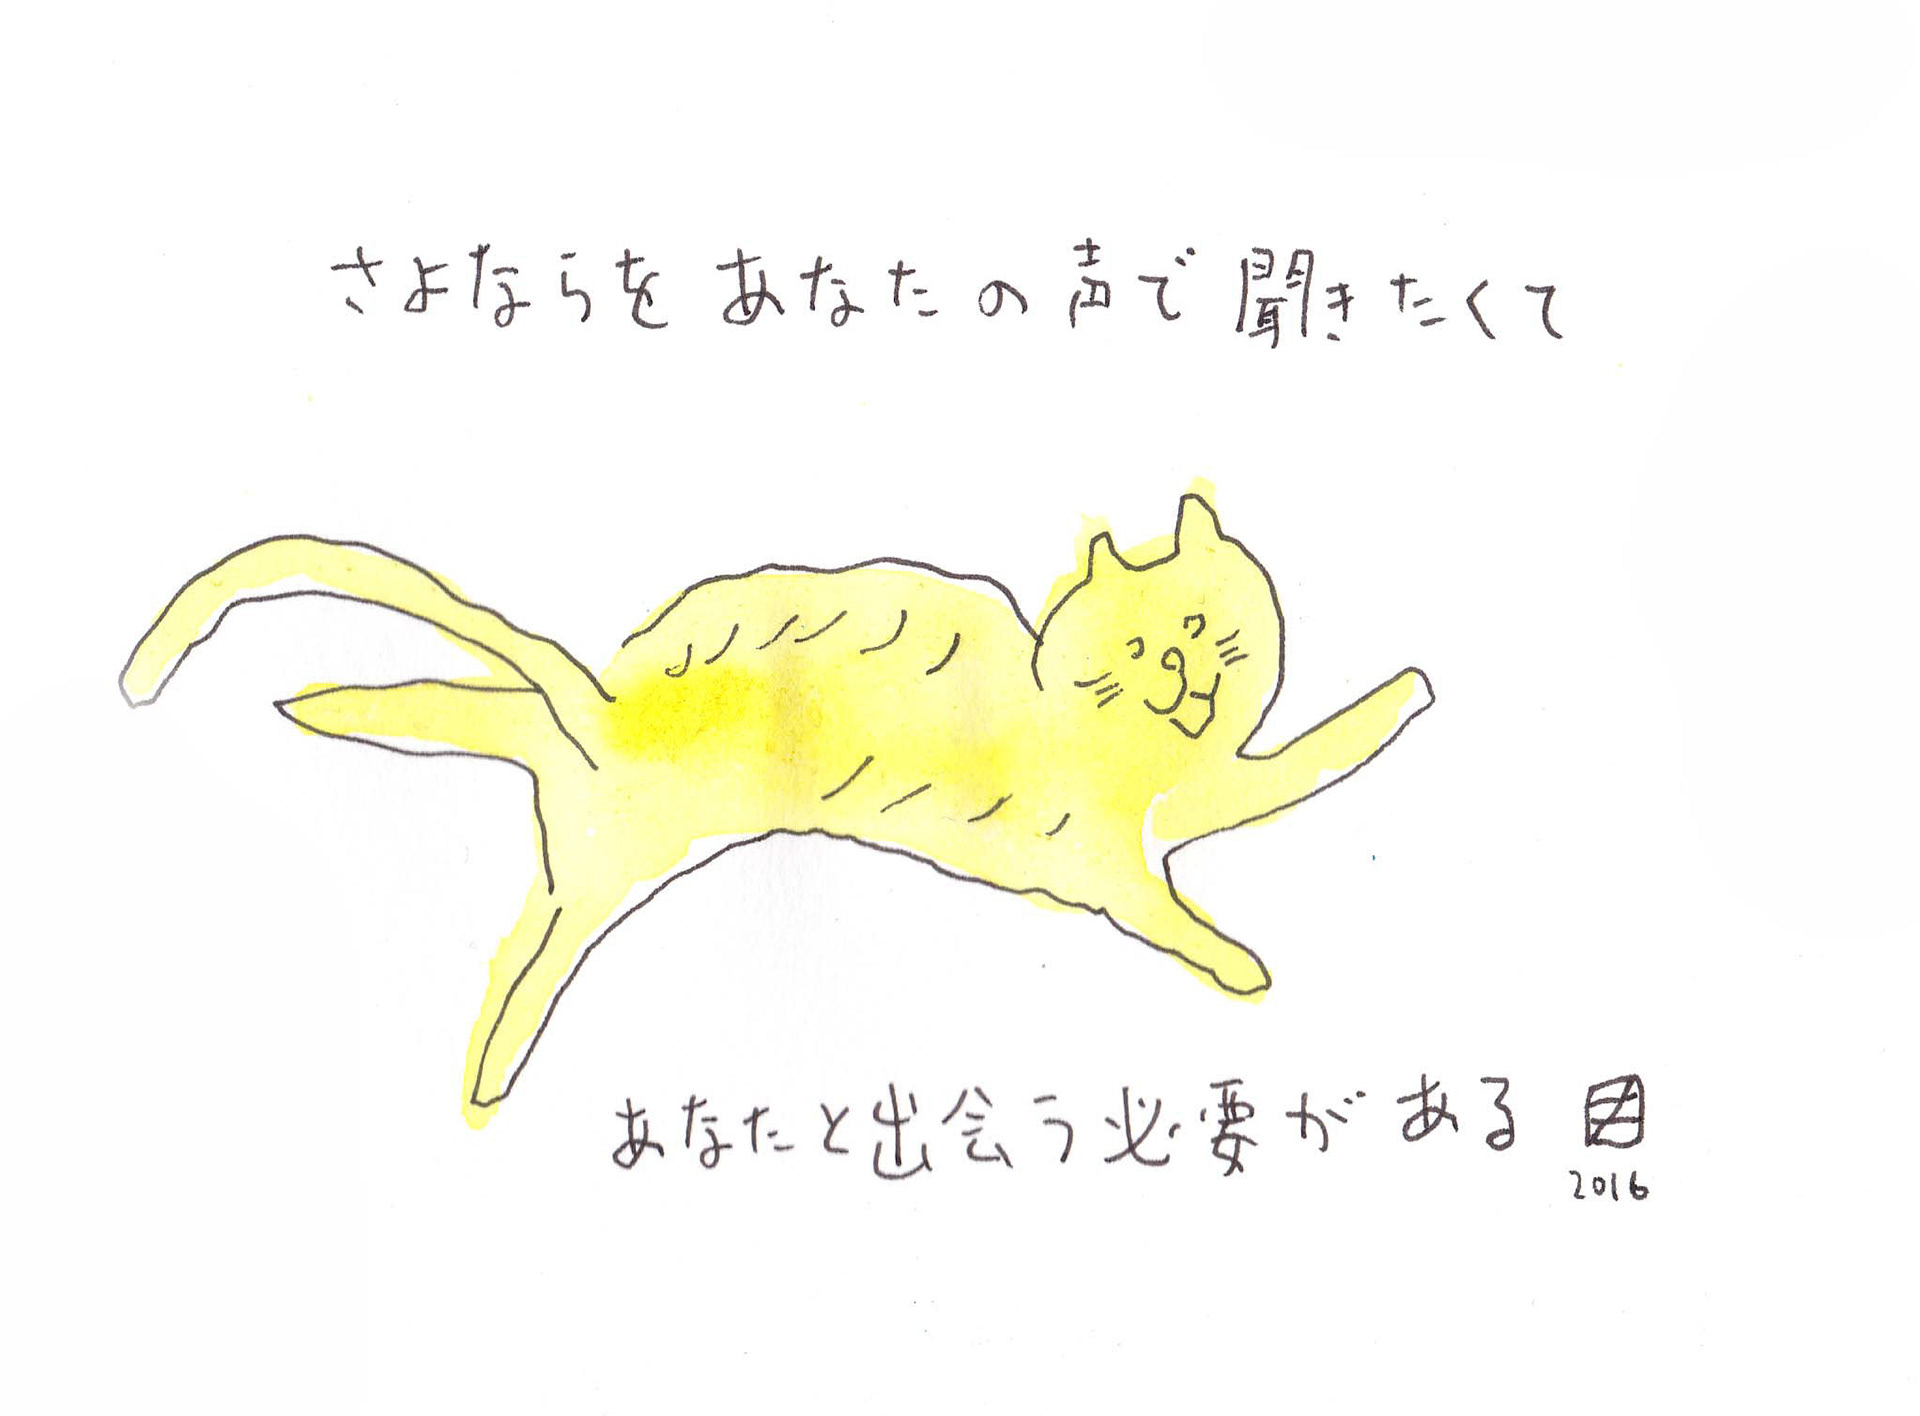 さよならをあなたの声で聞きたくて
あなたと出会う必要がある
2016